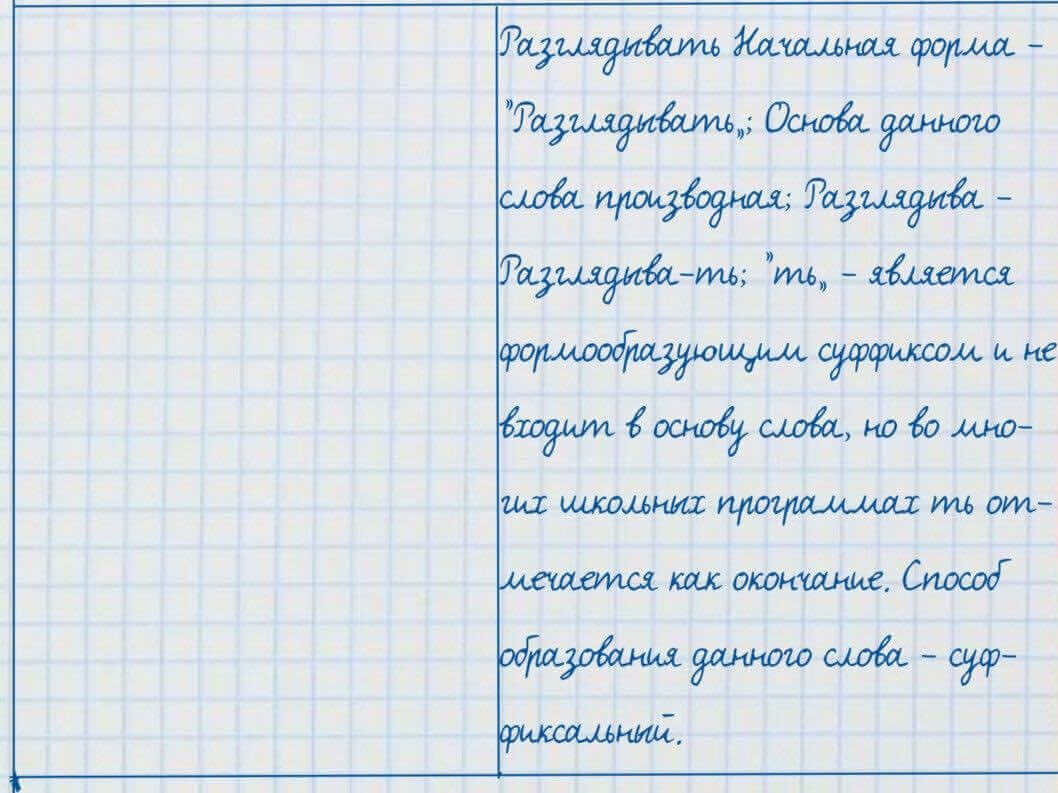 Разглядывать Начальная форма –
"Разглядывать„; Основа данного
слова производная; Разглядыва –
Разглядыва-ть; "ть„ – является
формообразующим суффиксом и не
входит в основу слова, но во мно-
гих школьных программах ть от-
мечается как окончание. Способ
образования данного слова – суф-
фиксальный.